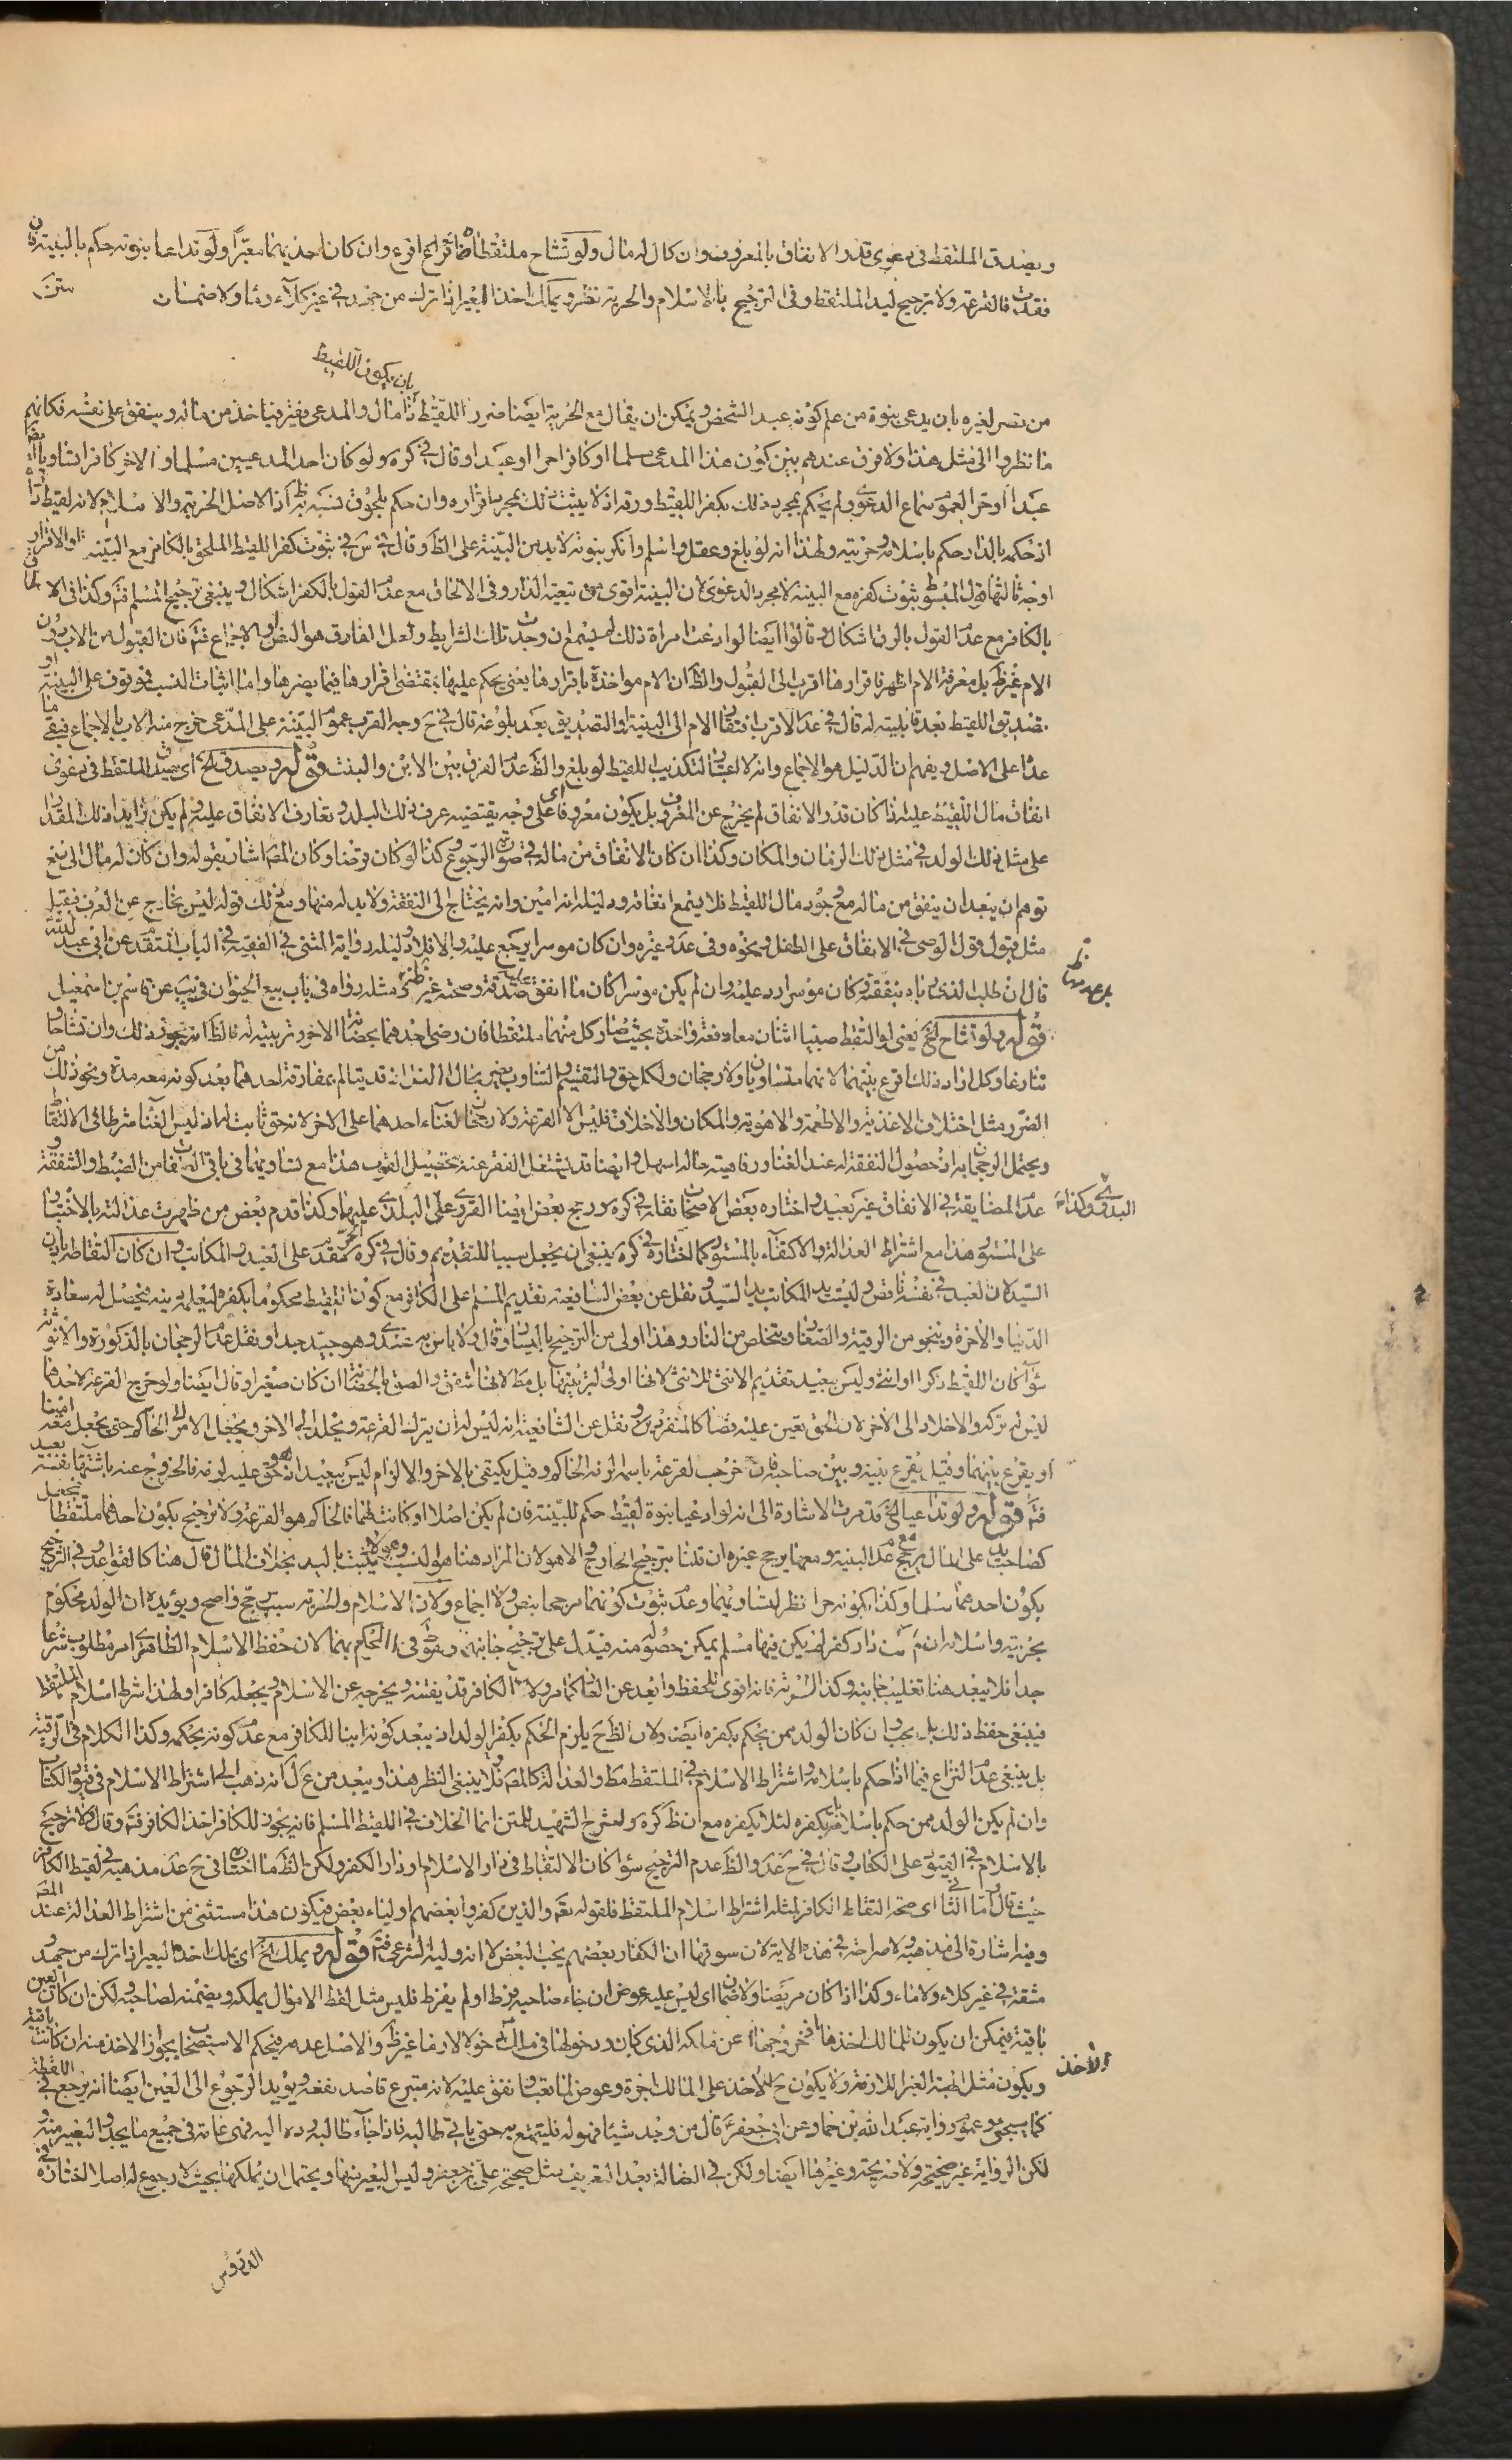 ويصدق الملتقط في دعوى قدر الانفاق بالمعروف وان كان له مال ولو تشاح ملتقطان اقرع وان كان احدهما معسرا ولو تداعيا بنوته حكم بالبينة فان
فقدت فالقرعة ولا ترجيح ليد الملتقط وفي الترجيح بالاسلام والحرية نظر ويملك اخذ البعير اذا ترك من جهد في غير كلاء وماء ولا ضمان
بان يكون اللقيط
من تضرر لغيره بان يدعي بنوة من علم كونه عبد الشخص ويمكن ان يقال مع الحرية ايضا ضرر اللقيط ذا مال والمدعي فقير فياخذ من ماله وينفق على نفسه فكانهم
ما نظروا الى مثل هذا ولا فرق عندهم بين كون هذا المدعي مسلما او كافرا حرا او عبدا وقال في كره ولو كان احد المدعيين مسلما او الاخر كافرا تساويا
عبدا او حر العموم سماع الدعوى ولم يحكم بمجرد ذلك بكفر اللقيط ورقه اذ لا يثبت ذلك بمجرد اقراره وان حكم بلحوق نسبه به اذ الاصل الحرية والاسلام لانه لقيط
اذ حكم بالدار حكم باسلامه وحريته ولهذا انه لو بلغ وعقل واسلم وانكر بنوته لا بد من البينة على الظ وقال في س في ثبوت كفر اللقيط الملحق بالكافر مع البينة او الاقرار
اوجه ثالثها قول المبسوط ثبوت كفره مع البينة لا مجرد الدعوى لان البينة اقوى من تبعية الدار وفي الالحاق مع عدم القول بالكفر اشكال وينبغي ترجيح المسلم فتم وكذا في الالحاق
بالكافر مع عدم القول بالرق اشكال وقالوا ايضا لو ادعت امراة ذلك لم يسمع وان وجدت تلك الشرايط ولعل الفارق هو النص والاجماع فتم فان القبول من الاب دون
الام غير ظ بل معرفة الام اظهر فاقرارها اقرب الى القبول والظ ان الام مواخذة باقرارها يعني يحكم عليها بمقتضى اقرارها فيما يضرها واما اثبات النسب فموقوف على البينة او
تصديق اللقيط بعد قابليته له قال في عد الاقرب افتقار الام الى البينة او التصديق بعد بلوغه قال في ح وجه القرب عموم البينة على المدعي خرج منه الاب بالاجماع فيبقى ما
عداه على الاصل ويفهم ان الدليل هو الاجماع وانه لا اعتبار لتكذيب اللقيط لو بلغ والظ عدم الفرق بين الابن والبنت قوله ويصدق الخ اي يصدق الملتقط في دعوى
انفاق مال اللقيط عليه اذا كان قدر الانفاق لم يخرج عن المعروف بل يكون معروفا اي على وجه يقتضيه عرف ذلك البلد وتعارف الانفاق عليه ولم يكن زايدا ذلك المقدار
على مثل ذلك الولد في مثل ذلك الزمان والمكان وكذا ان كان الانفاق من ماله في صورة الرجوع كذا لو كان قرضا وكان المص اشار بقوله وان كان له مال الى رفع
توهم ان يبعد ان ينفق من ماله مع وجود مال اللقيط فلا يسمع انفاقه ودليله انه امين وانه يحتاج الى النفقة ولا بد له منها ومع ذلك قوله ليس بخارج عن العرف فيقبل
مثل قبول قول الوصي في الانفاق على الطفل ونحوه وفي عدم غيره وان كان موسرا يرجع عليه والا فلا ودليله رواية المثنى في الفقيه في الباب المتقدم عن ابي عبد الله
قال ان طلب الذي رباه بنفقته وكان موسرا رد عليه وان لم يكن موسرا كان ما انفق صدقة وصحته غير ظ مثله رواه في باب بيع الحيوان في يب عن قاسم بن اسمعيل
قوله ولو تشاح الخ يعني لو التقط صبيا اثنان معا دفعة واحدة بحيث صار كل منهما ملتقطا فان رضى احدهما بحضانة الاخر وتربيته له فالظ انه يجوز ذلك وان تشاحا و
تنازعا وكل اراد ذلك اقرع بينهما لانهما متساويان ولا رجحان ولكل حق والتقسيم والتناوب يضر بحال الولد لانه قد يتالم بمفارقة احدهما بعد كونه معه مدة ونحو ذلك من
الضرر مثل اختلاف الاغذية والاطعمة والاهوية والمكان والاخلاق فليس الا القرعة ولا رجحان لغناء احدهما على الاخر لانه حق ثابت لهما اذ ليس الغنا شرطا في الالتقاط
ويحتمل الرجحان به اذ حصول النفقة له عند الغنا ورفاهيته حاله اسهل وايضا قد يشتغل الفقر عنه بتحصيل القوت هذا مع تساويهما في باقي الصفات من الضبط والشفقة و
عدم المضايقة في الانفاق غير بعيد واختاره بعض الاصحاب نقله في كره ورجح بعض ايضا القروي على البدوي وكذا البلدي عليهما وكذا قدم بعض من ظهرت عدالته بالاختبار
على المستور هذا مع اشتراط العدالة والاكتفاء بالمستور كما اختاره في كره ينبغي ان يجعل سببا للتقديم وقال في كره الحر مقدم على العبد والمكاتب وان كان التقاطه باذن
السيد لان العبد في نفسه ناقص وليست يد المكاتب يد السيد ونقل عن بعض الشافعية تقديم المسلم على الكافر مع كون اللقيط محكوما بكفره ليعلمه دينه فيحصل له سعادة
الدنيا والاخرة وينجو من الرقية والصغار ويتخلص من النار وهذا اولى من الترجيح باليسار وقال ولا باس به عندي وهو جيد جدا ونقل عدم الرجحان بالذكورة والانوثة
سواء كان اللقيط ذكرا او انثى وليس ببعيد تقديم الانثى للانثى لانها اولى لتربيتها بل مط لانها اشفق والصق بالحضانة ان كان صغيرا وقال ايضا ولو خرج القرعة لاحدهما
ليس له تركه والاخلاد الى الاخر لان الحق تعين عليه فصار كالمنفرد ونقل عن الشافعية انه ليس له ان يترك القرعة ويخلد الى الاخر ويجعل الامر الى الحاكم حتى يجعل معه امينا
او يقرع بينهما وقيل يقرع بينه وبين صاحبه فان خرجت القرعة باسم الزمه الحاكم وقيل يكتفي بالاخر والالزام ليس ببعيد اذ هو حق عليه لزمه فالخروج عنه باشتهاء نفسه بعيد
فتم قوله ولو تداعيا الخ قد مرت الاشارة الى انه لو ادعيا بنوة لقيط حكم للبينة فان لم يكن اصلا او كانت لهما فالحاكم هو القرعة ولا ترجيح بكون احدهما ملتقطا
كصاحب يد على المال يرجح مع عدم البينة ومعها يرجح غيره ان قلنا بترجيح الخارج والا هو لان المراد هنا هو النسب وهو لا يثبت باليد بخلاف المال قال هنا كالقواعد وفي الترجيح
بكون احدهما مسلما وكذا بكونه حرا نظر لتساويهما وعدم ثبوت كونهما مرجحا بنص ولا اجماع ولان الاسلام والحرية سبب مرجح واضح ويؤيده ان الولد محكوم
بحريته واسلامه ان لم يكن دار كفر لم يكن فيها مسلم يمكن حصوله منه فيدل على ترجيح جانبهما ويقوى في الحكم بهما لان حفظ الاسلام الظاهري امر مطلوب شرعا
جدا فلا يبعد هنا تغليب جانبه وكذا الحرية فانه اقوى للحفظ وابعد عن العار كما مر ولان الكافر قد يفتنه ويخرجه عن الاسلام ويجعله كافرا ولهذا شرط اسلام الملتقط
فينبغي حفظ ذلك بل يجب وان كان الولد ممن يحكم بكفره ايضا ولان الظ ح يلزم الحكم بكفر الولد اذ يبعد كونه ابنا للكافر مع عدم كونه بحكمه وكذا الكلام في الرقية
بل ينبغي عدم النزاع فيما اذا حكم باسلامه واشتراط الاسلام في الملتقط مط والعدالة كالمص فلا ينبغي النظر هذا ويبعد من عد انه ذهب الى اشتراط الاسلام في قبول الكتاب
وان لم يكن الولد ممن حكم باسلامه بل بكفره لئلا يكفره مع ان ظ كره وشرح الشهيد للمتن انما الخلاف في اللقيط المسلم فانه يجوز للكافر اخذ الكافر فتم وقال لا ترجيح
بالاسلام في القبول على الكتاب وقال في ح عد والظ عدم الترجيح سواء كان الالتقاط في دار الاسلام او دار الكفر ولكن الظ ما اختاره في ح عد مذهبه في لقيط الكافر
حيث قال واما الثاني اي صحة التقاط الكافر لمثله اشتراط اسلام الملتقط فلقوله تعم والذين كفروا بعضهم اولياء بعض فيكون هذا مستثنى من اشتراط العدالة عند المص
وفيه اشارة الى مذهبه ولا صراحة في هذه الاية لان سوقها ان الكفار بعضهم يحب البعض لا انه وليه الشرعي فتم قوله ويملك الخ اي يملك اخذ البعير اذا ترك من جهد و
مشقة في غير كلاء ولا ماء وكذا اذا كان مريضا ولا ضمان اي ليس عليه عوض ان جاء صاحبه فرط او لم يفرط فليس مثل لقط الاموال يملكه ويضمنه لصاحبه ولكن ان كان العين
باقية فيمكن ان يكون للمالك اخذها فخروجها عن ملكه الذي كان ودخولها في ملك الاخذ دخولا لازما غير ظ والاصل عدمه فيحكم الاستصحاب بجواز الاخذ منه ان كانت باقية
ويكون مثل الهبة الغير اللازمة ولا يكون ح للاخذ على المالك اجرة وعوض لما تعب وانفق عليه لانه متبرع قاصد نفعه ويؤيد الرجوع الى العين ايضا انه يرجع في اللقطة
كما سيجئ وعموم رواية عبد الله بن حماد عن ابي جعفر ع قال من وجد شيئا فهو له فليتمتع به حتى ياتي طالبه فاذا جاء طالبه رده اليه فهي عامة في جميع ما يجد البعير وغيره
لكن الرواية غير صحيحة ولا صريحة وغيرها ايضا ولكن في الضالة بعد التعريف مثل صحيحة علي بن جعفر وليس البعير منها ويحتمل ان يملكها بحيث لا رجوع له اصلا اختاره في
الدروس